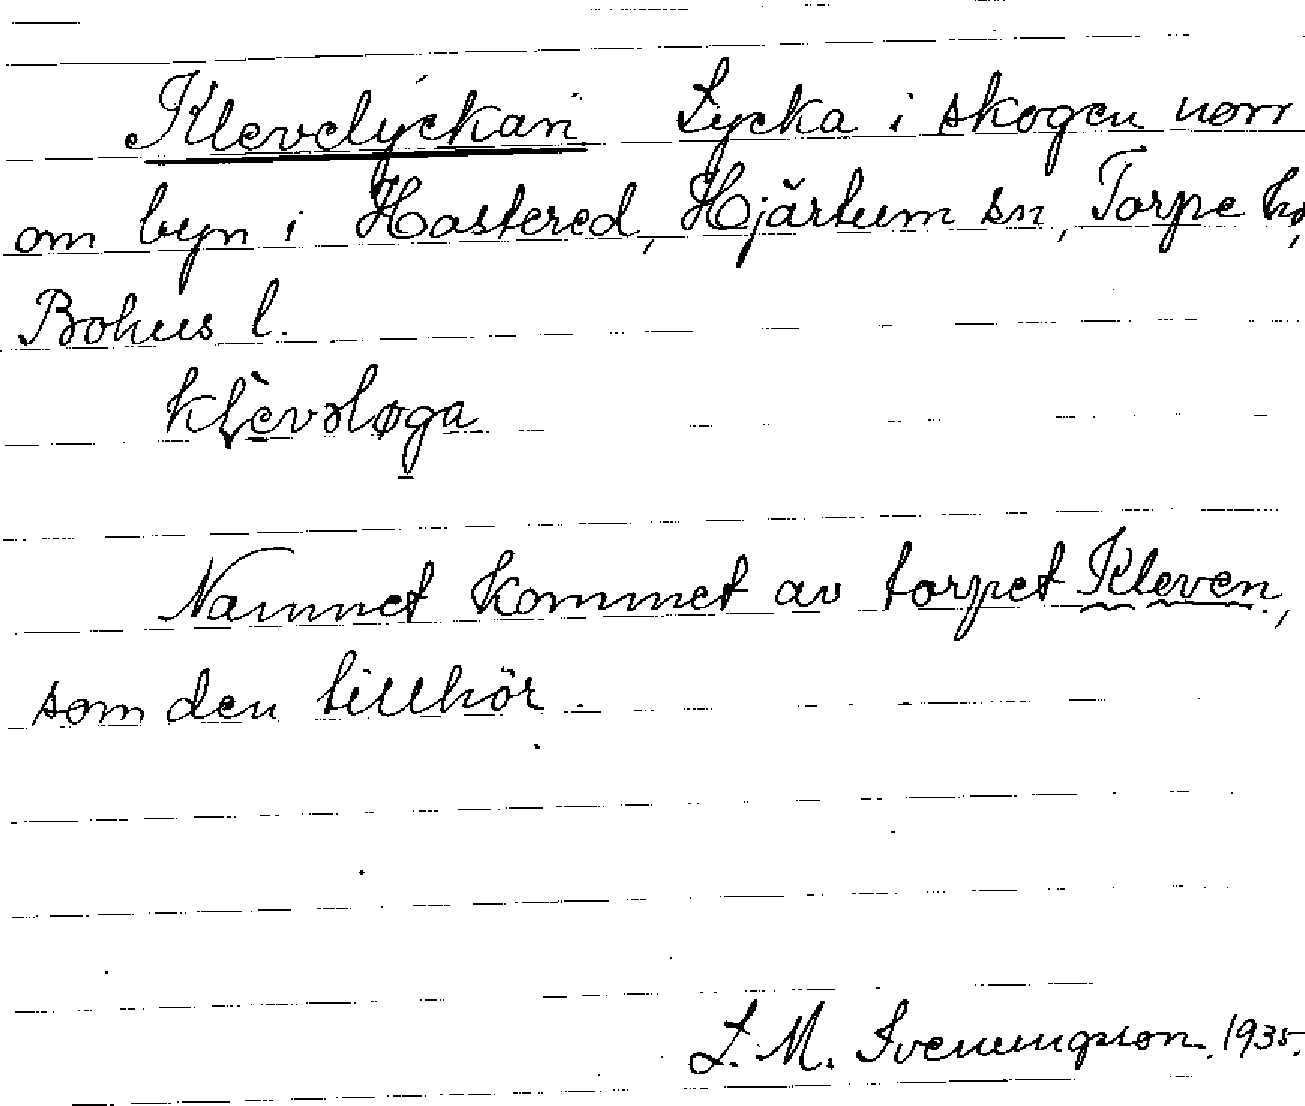 Klevelyckan Lycka i skogen norr
om byn i Hastered, Hjärtum sn, Torpe hd,
Bohus l.
klèvəløga
Namnet kommet av torpet Kleven,
som den tillhör.
L. M. Svenungsson. 1935.